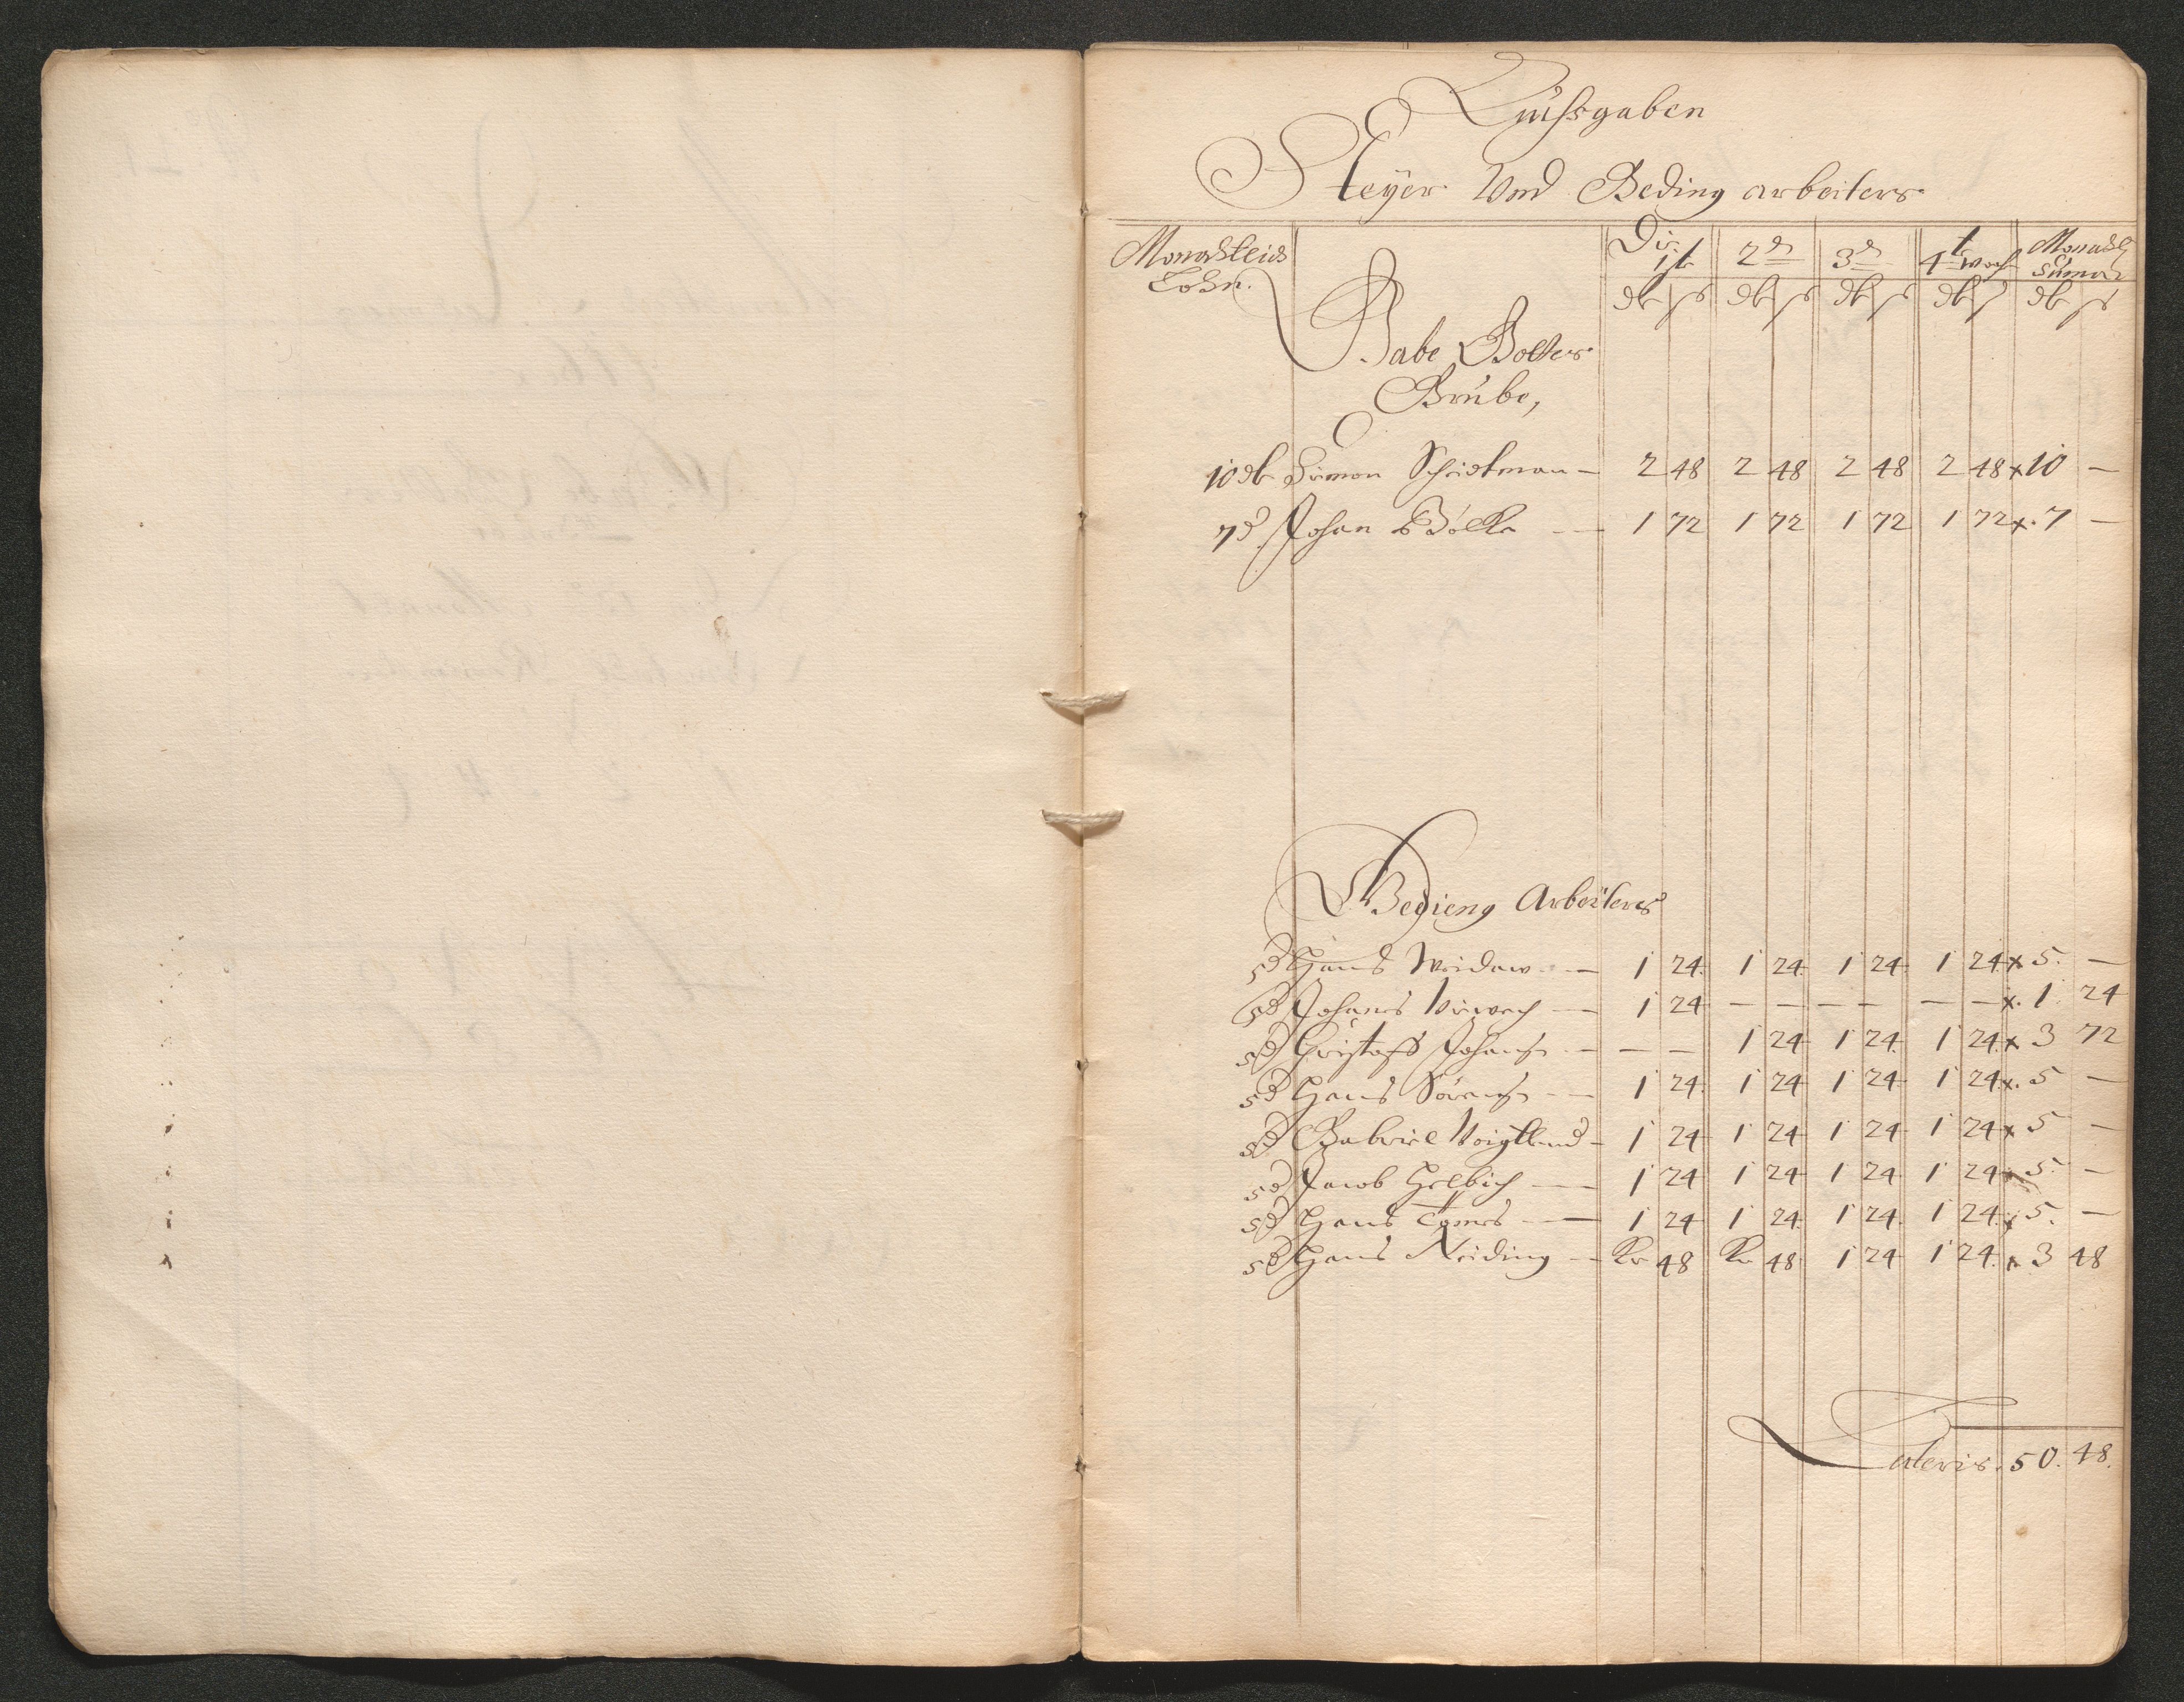 Aussgaben
Steyer Und Beding arbeiters
Monadtleich Lohn. Die 1ste 2d 3d 4t woch Monadtl Suma
db ss db ss db ss db ss db ss
Gabe Gottes
Grube,
10 db Simon Schichtman — 2 48 2 48 2 48 2 48 x 10 —
7 d Johan Bölke — 1 72 1 72 1 72 1 72 x. 7 —
Bedieng Arbeiters
5 d Hans Weidaw — 1 24. 1 24 1 24 1 24 x 5. —
5 d Johans — 1 24 — — — — — — x. 1. 24
5 d Christoff Johans — — — 1 24 1 24. 1 24. x 3 72
5 d Hans Sörens — 1 24. 1 24 1 24 1 24 x. 5 —
5 d Gabriel Voigtland — 1 24 1 24 1 24 1 24 x 5 —
5 d Jacob Helbich — 1 24 1 24 1 24 1 24 x 5. —
5 d Hans — 1 24 1 24. 1 24. 1 24. x 5. —
5 d Hans Neiding — Kr 48 Kr 48 1 24 1 24. x 3 48
Lateris. 50. 48.